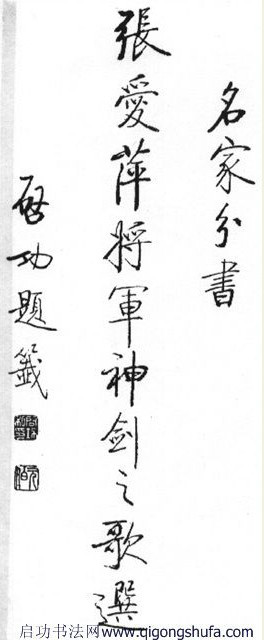 名家分書
張愛萍將軍神劍之歌選
啓功題籤
启功书法网www.qigongshufa.com